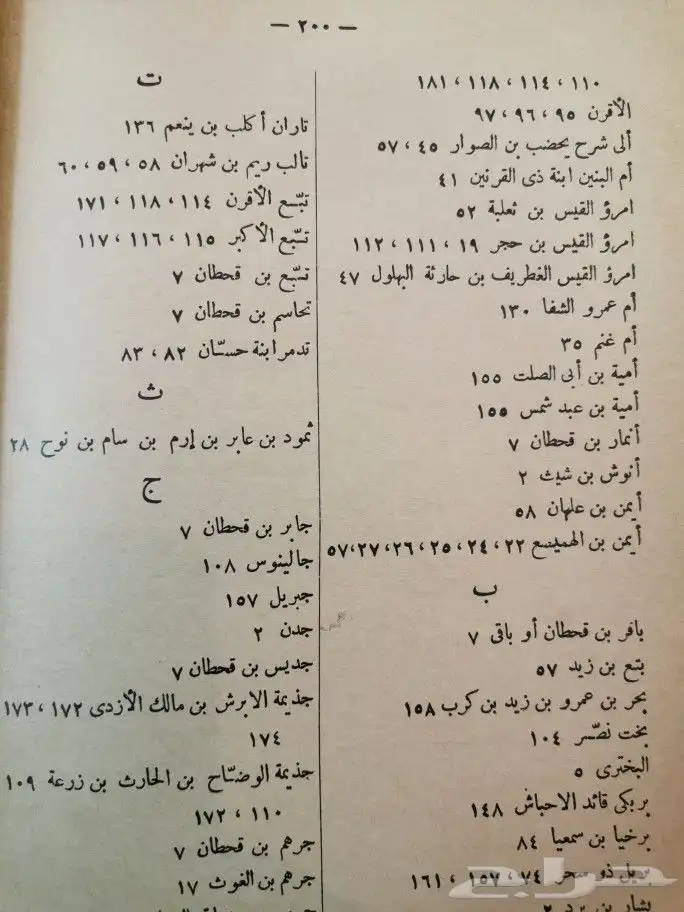 — ٢٠٠ —
١١٠ ، ١١٤ ، ١١٨ ، ١٨١
الأقرن ٩٥ ، ٩٦ ، ٩٧
ألى شرح يحضب بن الصوار ٤٥ ، ٥٧
أم البنين ابنة ذى القرنين ٤١
امرؤ القيس بن ثعلبة ٥٢
امرؤ القيس بن حجر ١٩ ، ١١١ ، ١١٢
امرؤ القيس الغطريف بن حارثة البهلول ٤٧
أم عمرو الشفا ١٣٠
أم غنم ٣٥
أمية بن أبى الصلت ١٥٥
أمية بن عبد شمس ١٥٥
أنمار بن قحطان ٧
أنوش بن شيث ٢
أيمن بن علهان ٥٨
أيمن بن الهميسع ٢٢ ، ٢٤ ، ٢٥ ، ٢٦ ، ٢٧ ، ٥٧
ب
بافر بن قحطان أو باقى ٧
بتع بن زيد ٥٧
بحر بن عمرو بن زيد بن كرب ١٥٨
بخت نصّر ١٠٤
البخترى ٥
بربكى قائد الاحباش ١٤٨
برخيا بن سمعيا ٨٤
ذو سحر ٧٤ ، ١٥٧ ، ١٦١
بشار بن برد ٢
ت
تاران أكلب بن ينعم ١٣٦
تالب ريم بن شهران ٥٨ ، ٥٩ ، ٦٠
تبّع الأقرن ١١٤ ، ١١٨ ، ١٧١
تبّع الأكبر ١١٥ ، ١١٦ ، ١١٧
تبّع بن قحطان ٧
تحاسم بن قحطان ٧
تدمر ابنة حسّان ٨٢ ، ٨٣
ث
ثمود بن عابر بن إرم بن سام بن نوح ٢٨
ج
جابر بن قحطان ٧
جالينوس ١٠٨
جبريل ١٥٧
جدن ٢
جديس بن قحطان ٧
جذيمة الابرش بن مالك الأزدى ١٧٢ ، ١٧٣
١٧٤
جذيمة الوضّاح بن الحارث بن زرعة ١٠٩
١١٠ ، ١٧٢
جرهم بن قحطان ٧
جرهم بن الغوث ١٧
حراج